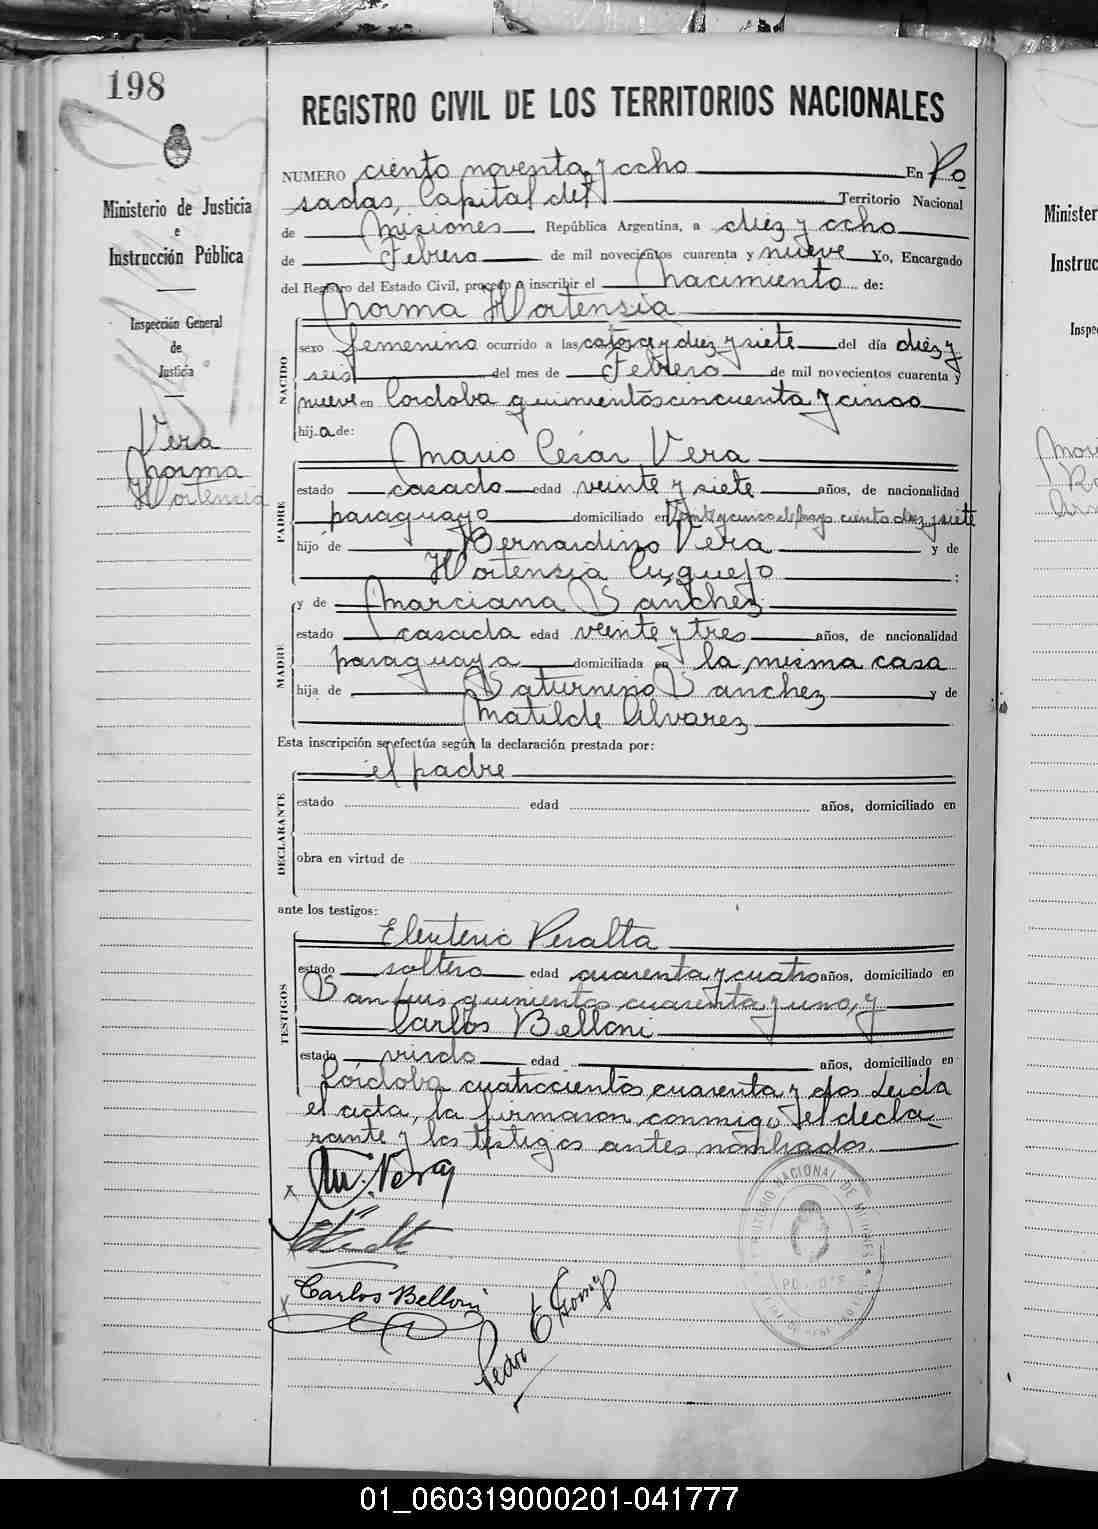 198
Ministerio de Justicia
e
Instrucción Pública
Inspección General
de
Justicia
Vera
Norma
Hortensia
REGISTRO CIVIL DE LOS TERRITORIOS NACIONALES
NUMERO ciento noventa y ocho En Po
sadas, Capital del Territorio Nacional
de Misiones República Argentina, a diez y ocho
de Febrero de mil novecientos cuarenta y nueve Yo, Encargado
del Registro del Estado Civil, procedo a inscribir el Nacimiento de:
Norma Hortensia
NACIDO
sexo femenino ocurrido a las catorce y diez y siete del día diez y
seis del mes de Febrero de mil novecientos cuarenta y
nueve en Córdoba quinientos cincuenta y cinco
hij a de:
PADRE
Mario César Vera
estado casado edad veinte y siete años, de nacionalidad
paraguayo domiciliado en Veinte y cinco de Mayo ciento diez y siete
hijo de Bernardino Vera y de
Hortensia Cuquejo :
MADRE
y de Marciana Sánchez
estado casada edad veinte y tres años, de nacionalidad
paraguaya domiciliada en la misma casa
hija de Saturnino Sánchez y de
Matilde Alvarez
Esta inscripción se efectúa según la declaración prestada por:
DECLARANTE
el padre
estado edad años, domiciliado en
obra en virtud de
ante los testigos:
TESTIGOS
Eleuterio Peralta
estado soltero edad cuarenta y cuatro años, domiciliado en
San Luis quinientos cuarenta y uno, y
Carlos Belloni
estado viudo edad años, domiciliado en
Córdoba cuatrocientos cuarenta y dos Leida
el acta, la firmaron conmigo el decla-
rante y los testigos antes nombrados.
M. Vera
Carlos Belloni
Pedro E
Minister
Instruc
Inspe
01_060319000201-041777